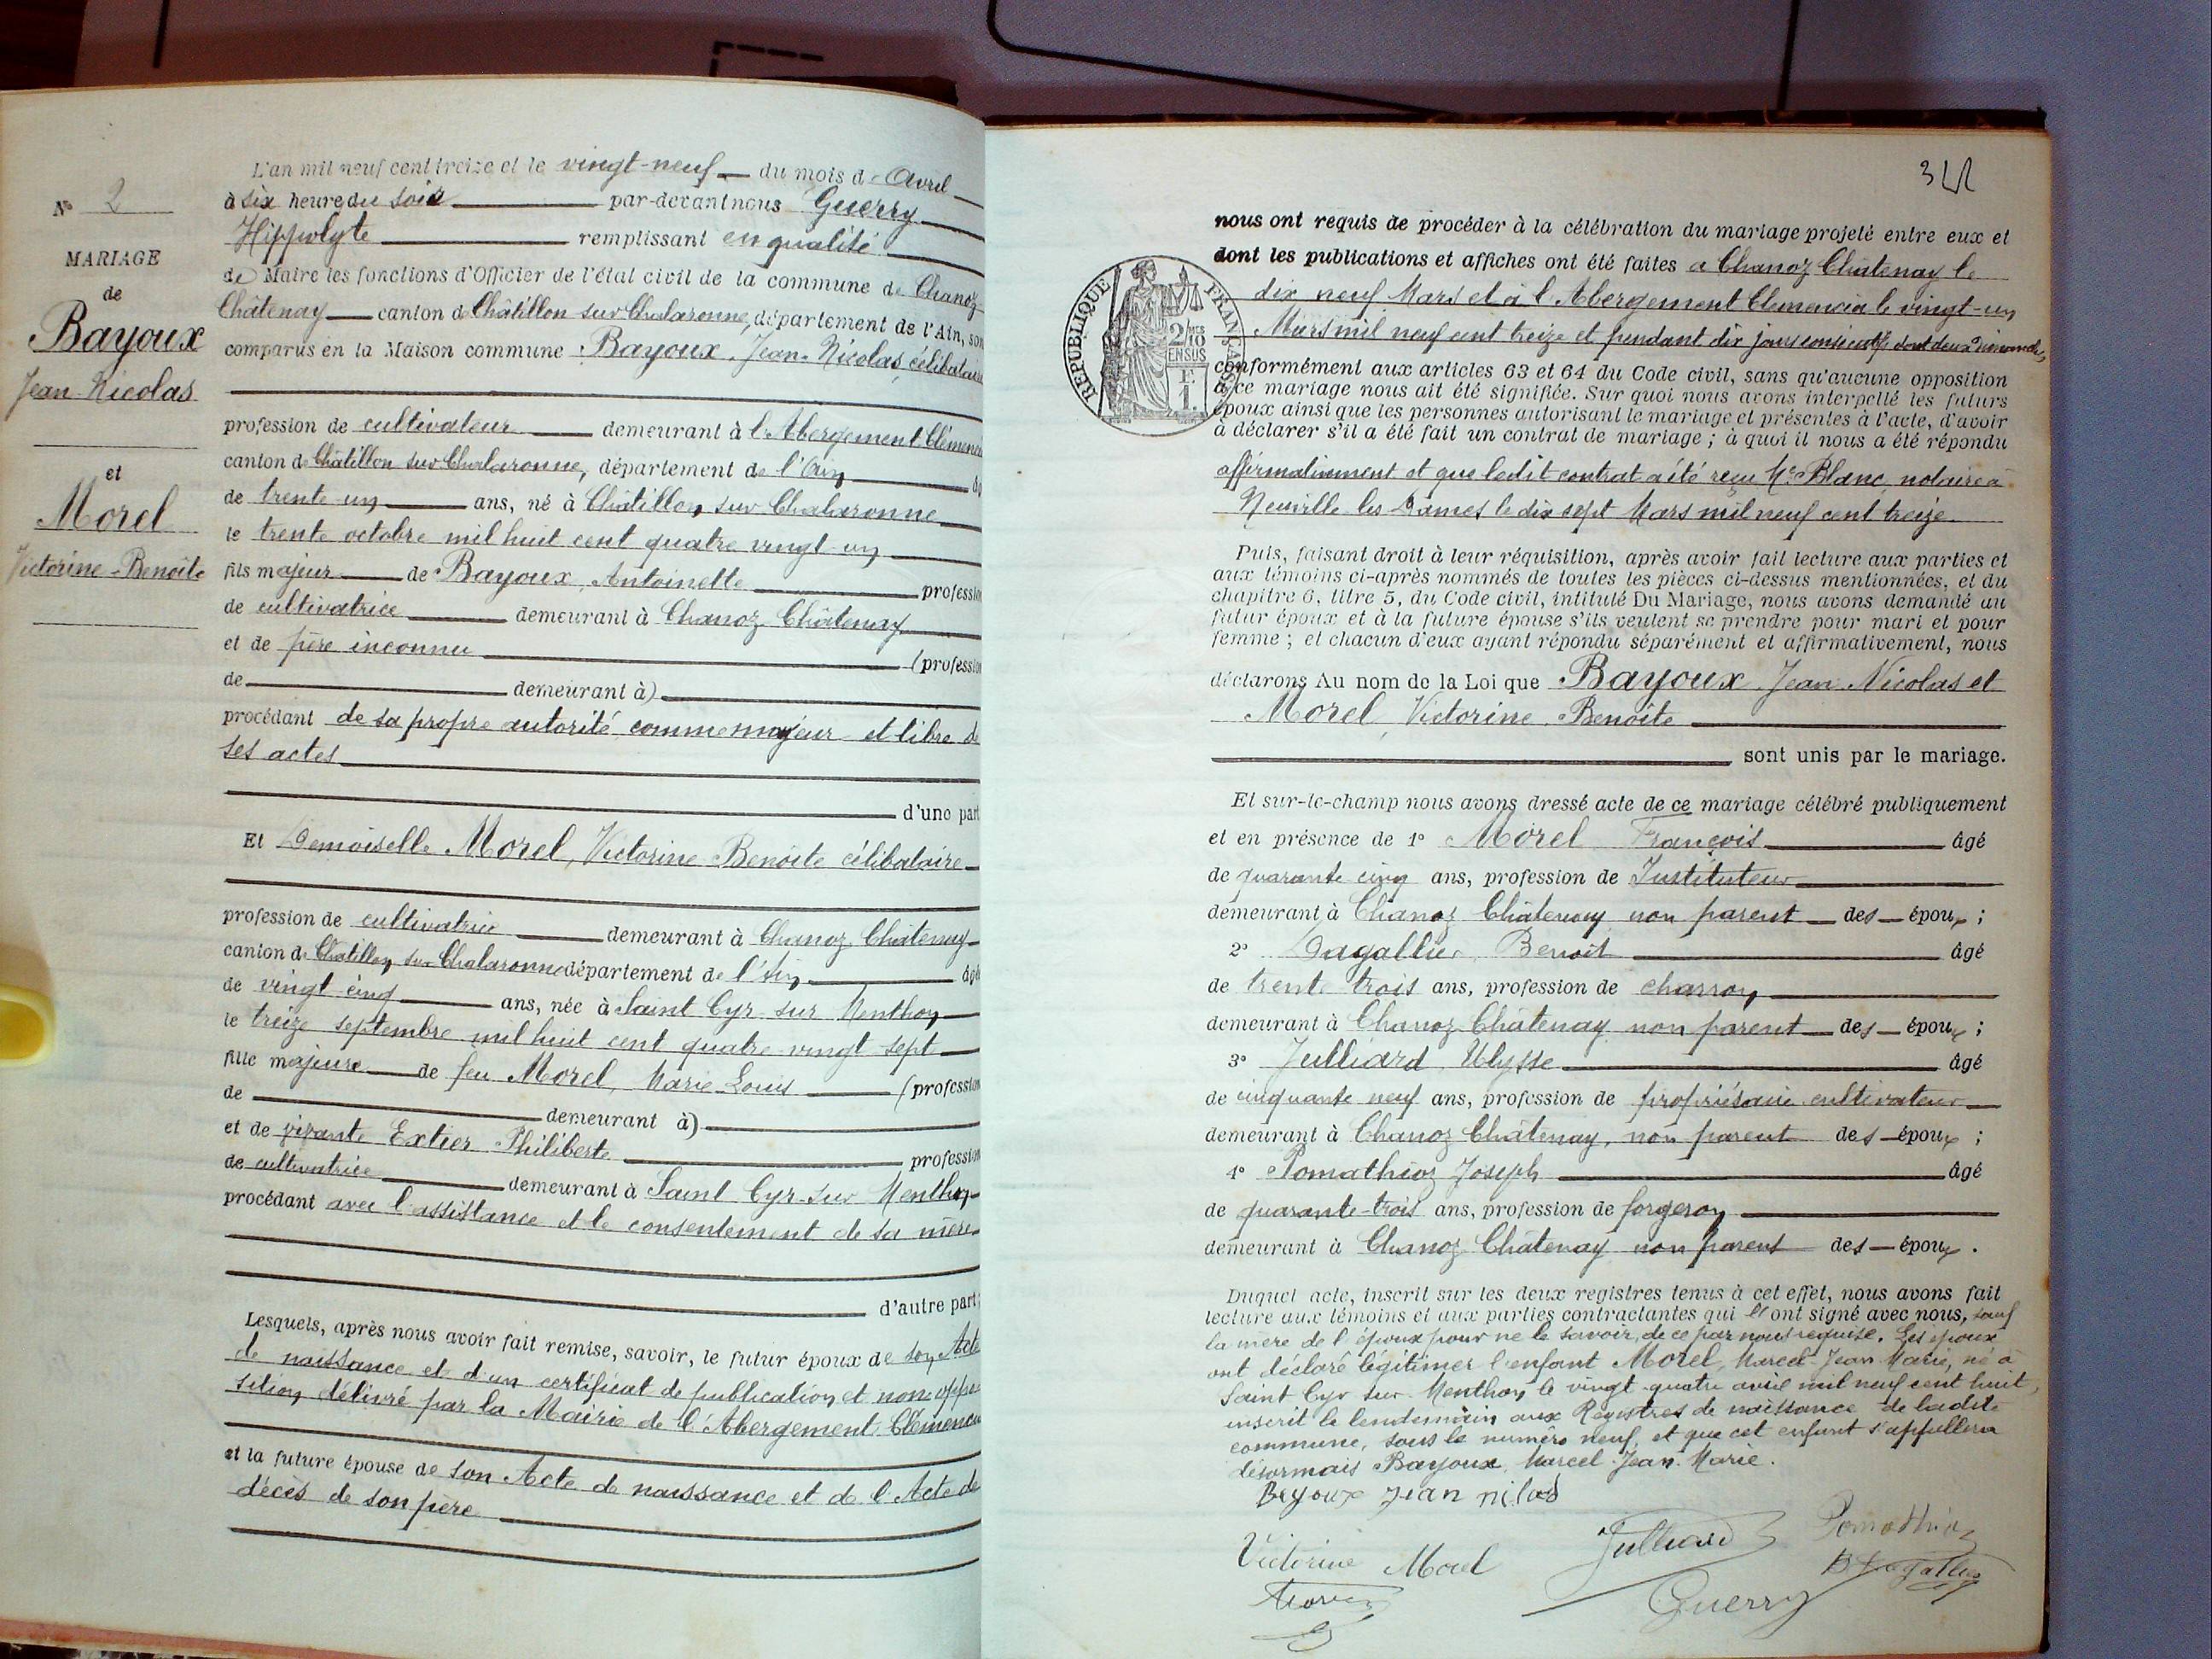 N° 2
MARIAGE
de
Bayoux
Jean-Nicolas
et
Morel
Victorine-Benoîte
L'an mil neuf cent treize et le vingt-neuf du mois d Avril
à six heure du soir par-devant nous Guerry
Hippolyte remplissant en qualité
de Maire les fonctions d'Officier de l'état civil de la commune de Chanoz-
Châtenay canton de Châtillon sur Chalaronne, département de l'Ain, son
comparus en la Maison commune Bayoux, Jean-Nicolas, célibataire
profession de cultivateur demeurant à l'Abergement Clémenc
canton de Châtillon sur Chalaronne, département de l'Ain
de trente un ans, né à Châtillon sur Chalaronne
le trente octobre mil huit cent quatre vingt-un
fils majeur de Bayoux, Antoinette professio
de cultivatrice demeurant à Chanoz Châtenay
et de père inconnu (professio
de demeurant à)
procédant de sa propre autorité comme majeur et libre de
ses actes
d'une part
Et Demoiselle Morel, Victorine Benoîte célibataire
profession de cultivatrice demeurant à Chanoz Châtenay
canton de Châtillon sur Chalaronne département de l'Ain âgé
de vingt cinq ans, née à Saint Cyr sur Menthon
le treize septembre mil huit cent quatre vingt sept
fille majeure de feu Morel, Marie Louis (profession
de demeurant à)
et de vivante Extier Philiberte profession
de cultivatrice demeurant à Saint Cyr-sur Menthon
procédant avec l'assistance et le consentement de sa mère
d'autre part;
Lesquels, après nous avoir fait remise, savoir, le futur époux de son Acte
de naissance et d'un certificat de publication et non oppo
sition délivré par la Mairie de l'Abergement Clémenci
et la future épouse de son Acte de naissance et de l'Acte de
décès de son père
nous ont requis de procéder à la célébration du mariage projeté entre eux et
dont les publications et affiches ont été faites à Chanoz Châtenay le
dix neuf Mars et à l'Abergement Clemencia le vingt-un
Mars mil neuf cent treize et pendant dix jours consécutifs dont deux dimanches
REPUBLIQUE FRANÇAISE
2/10 MES
EN SUS
conformément aux articles 63 et 64 du Code civil, sans qu'aucune opposition
à ce mariage nous ait été signifiée. Sur quoi nous avons interpellé les futurs
époux ainsi que les personnes autorisant le mariage et présentes à l'acte, d'avoir
à déclarer s'il a été fait un contrat de mariage ; à quoi il nous a été répondu
affirmativement et que ledit contrat a été reçu Me Blanc, notaire à
Neuville les Dames le dix sept Mars mil neuf cent treize.
Puis, faisant droit à leur réquisition, après avoir fait lecture aux parties et
aux témoins ci-après nommés de toutes les pièces ci-dessus mentionnées, et du
chapitre 6, titre 5, du Code civil, intitulé Du Mariage, nous avons demandé au
futur époux et à la future épouse s'ils veulent se prendre pour mari et pour
femme ; et chacun d'eux ayant répondu séparément et affirmativement, nous
déclarons Au nom de la Loi que Bayoux Jean Nicolas et
Morel, Victorine Benoîte
sont unis par le mariage.
Et sur-le-champ nous avons dressé acte de ce mariage célébré publiquement
et en présence de 1° Morel François âgé
de quarante cinq ans, profession de Instituteur
demeurant à Chanoz Châtenay non parent des époux ;
2° Dagallier, Benoît âgé
de trente trois ans, profession de charron
demeurant à Chanoz Châtenay non parent des époux ;
3° Julliard, Ulysse âgé
de cinquante neuf ans, profession de propriétaire cultivateur
demeurant à Chanoz Châtenay, non parent des époux ;
4° Pomathioz Joseph âgé
de quarante-trois ans, profession de forgeron
demeurant à Chanoz Châtenay non parent des époux.
Duquel acte, inscrit sur les deux registres tenus à cet effet, nous avons fait
lecture aux témoins et aux parties contractantes qui l'ont signé avec nous, sauf
la mère de l'époux pour ne le savoir, de ce par nous requise. Les époux
ont déclaré légitimer l'enfant Morel, Marcel-Jean Marie, né à
Saint Cyr sur Menthon le vingt-quatre avril mil neuf cent huit,
inscrit le lendemain aux Registres de naissance de ladite
commune, sous le numéro neuf, et que cet enfant s'appellera
désormais Bayoux, Marcel-Jean-Marie.
Bayoux Jean
Victorine Morel
Julliard
Pomathioz
B Dagallier
Guerry